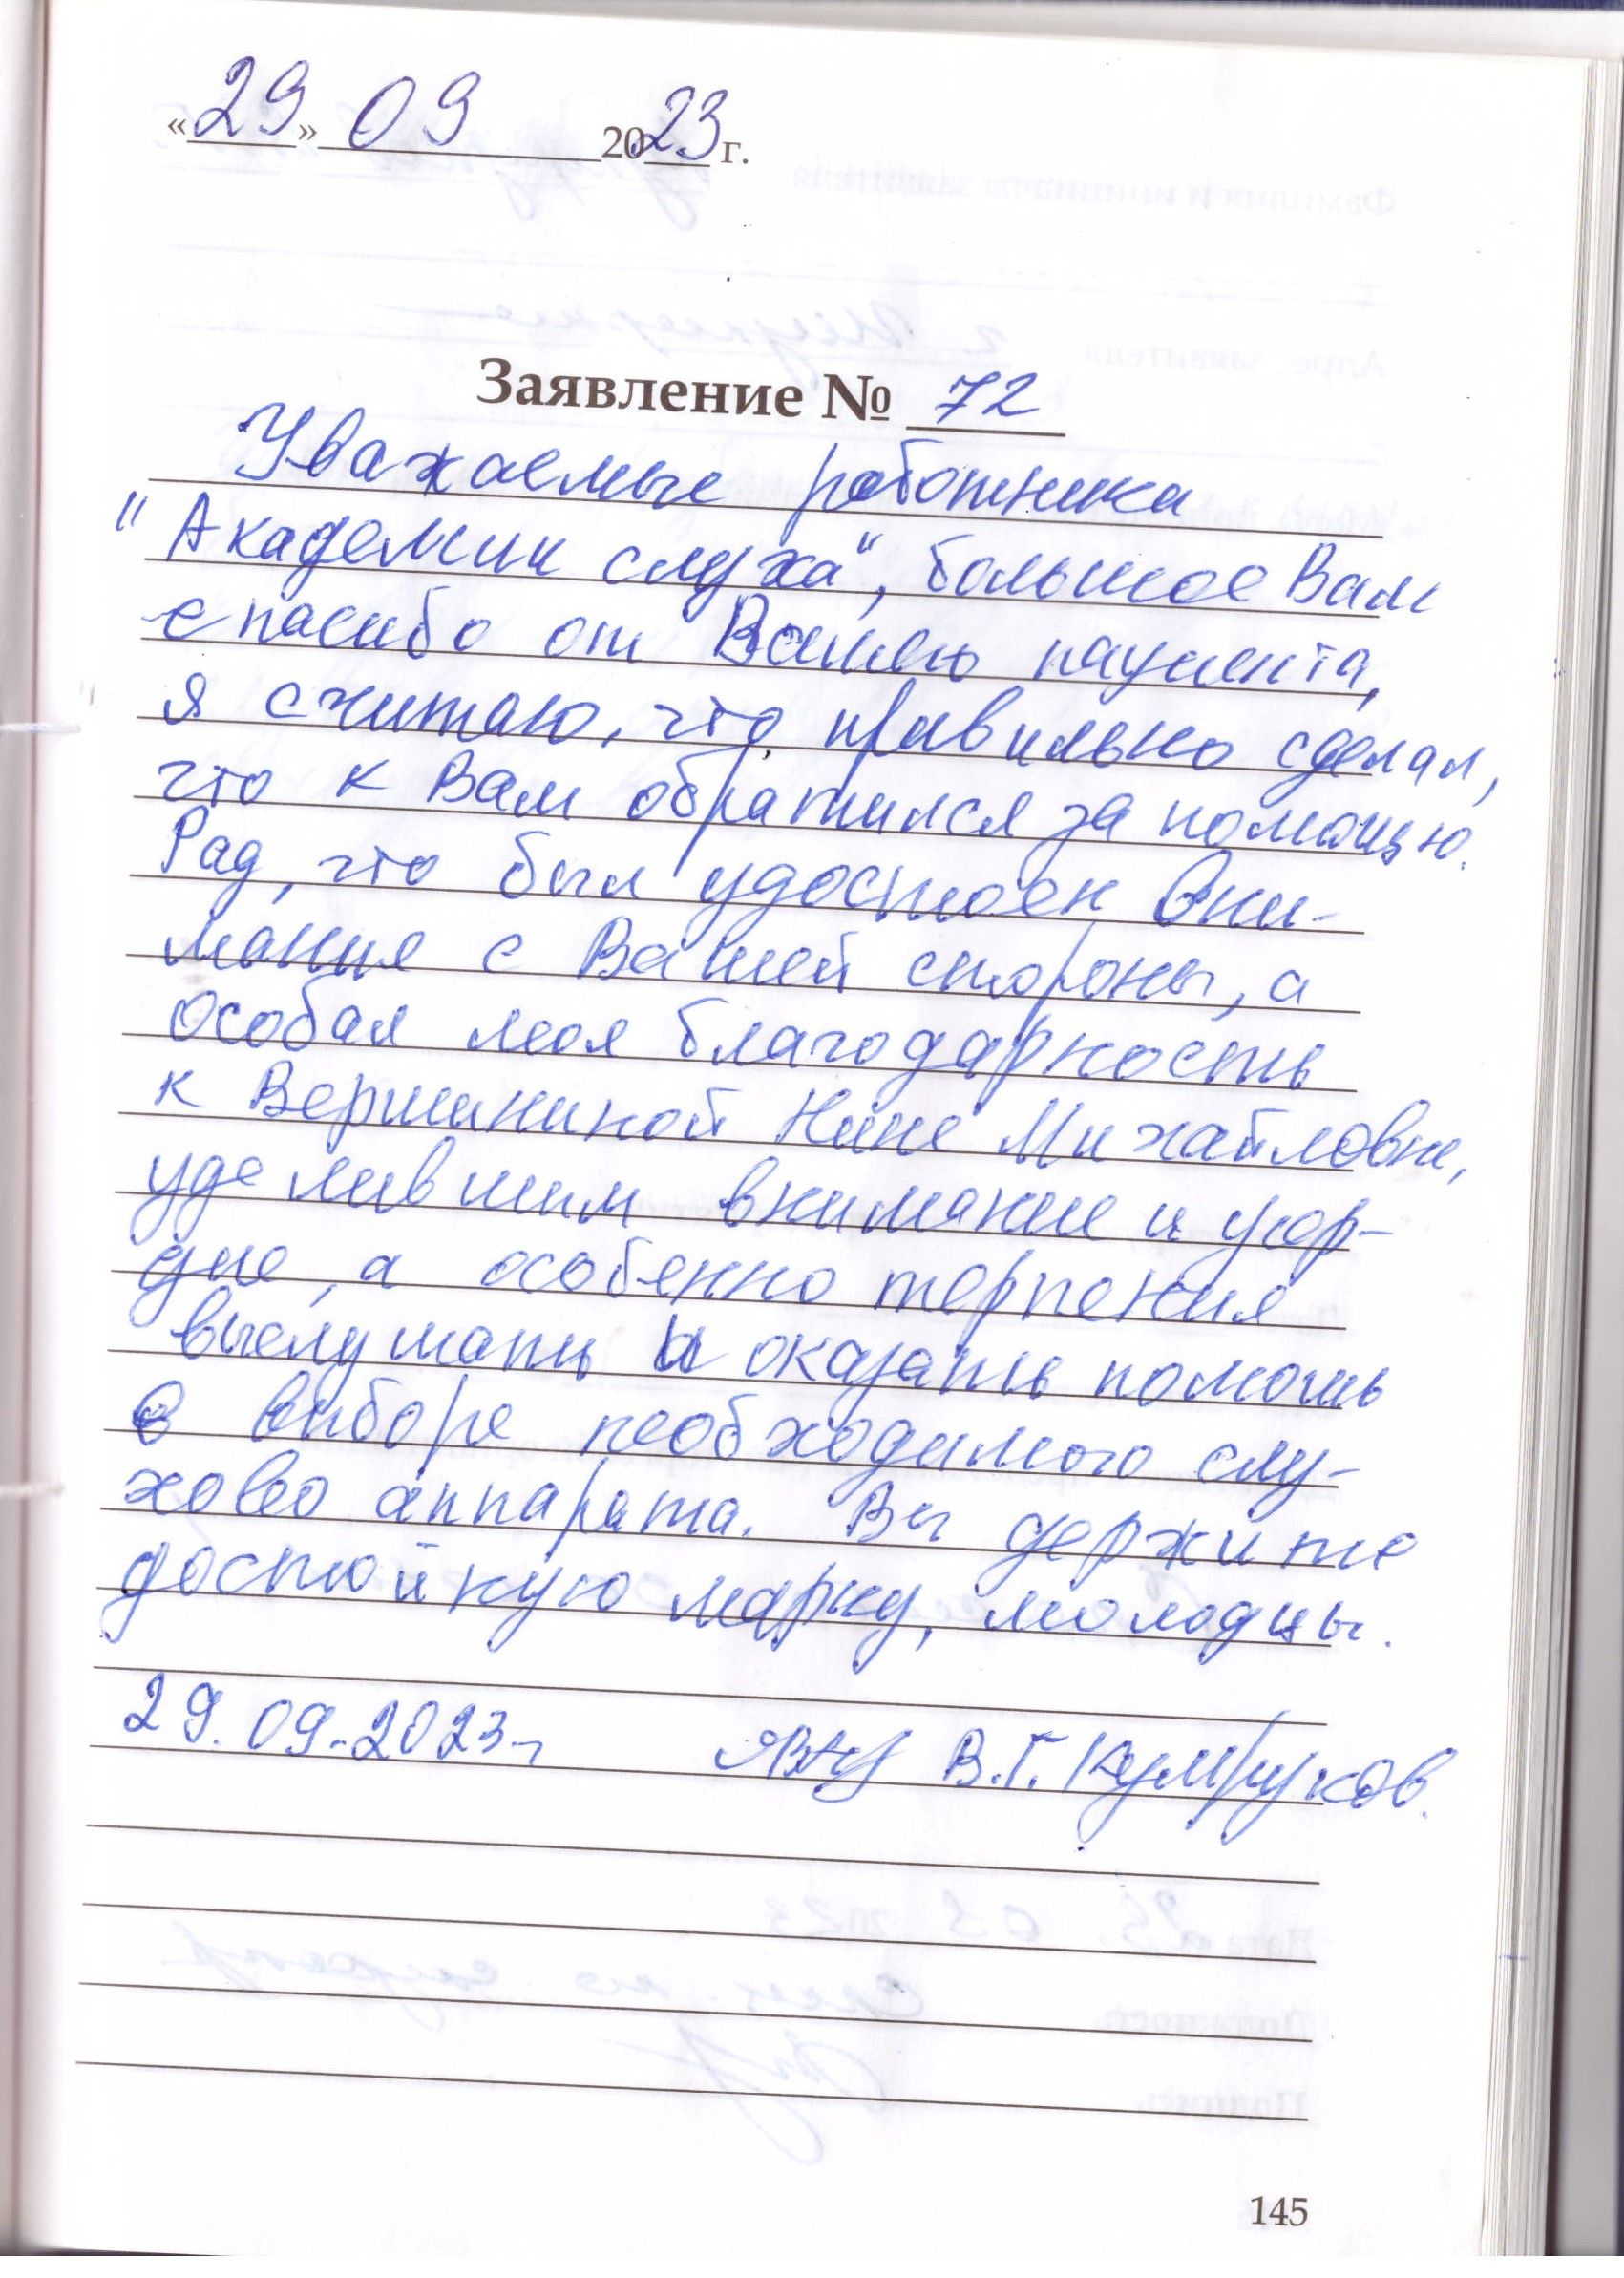 «29» 09 2023 г.
Заявление № 72
Уважаемые работника
"Академии слуха", большое Вам
спасибо от Вашего пациента,
я считаю, что правильно сделал,
что к Вам обратился за помощью.
Рад, что был удостоен вни-
мания с Вашей стороны, а
особая моя благодарность
к Вершининой Нине Михайловне,
уделившим внимание и усер-
дие, а особенно терпения
выслушать и оказать помошь
в выборе необходимого слу-
хово аппарата. Вы держите
достойную марку, молодцы.
29.09.2023г. В.Г. Кумруков.
145